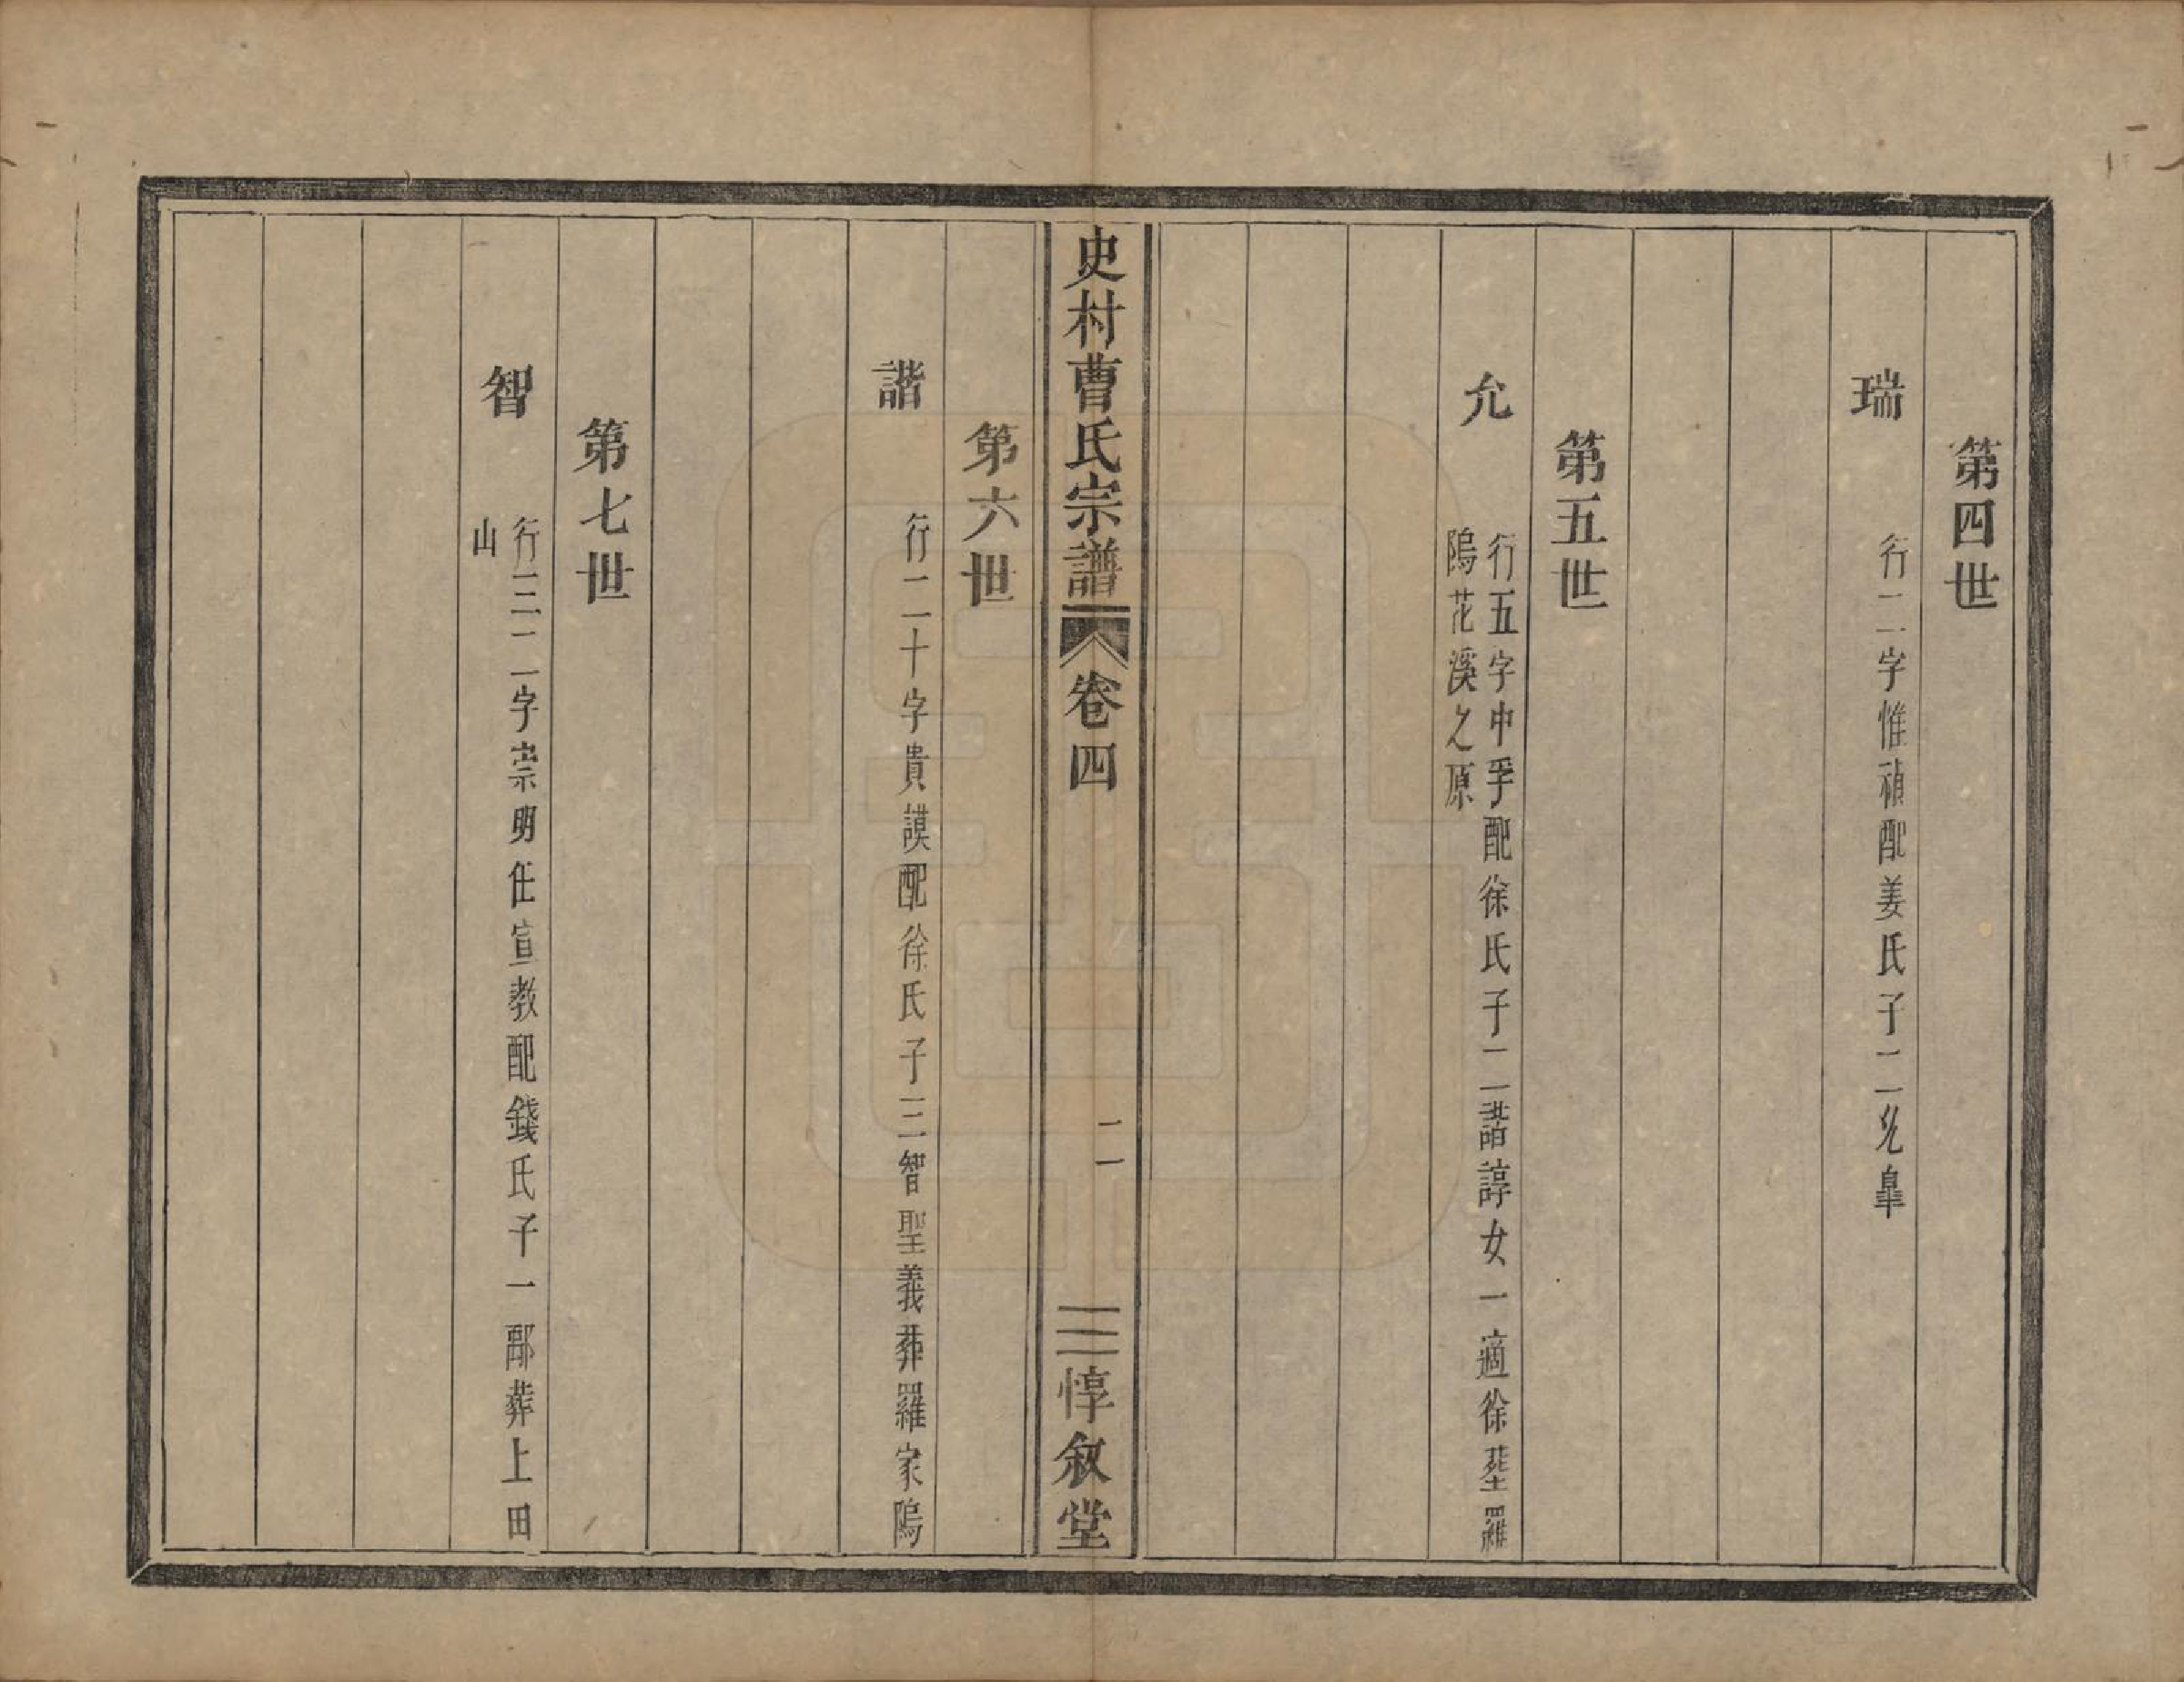 第四世
瑞
行二字惟禎配姜氏子二允臯
第五世
允
行五字中孚配徐氏子二諧諄女一適徐塟羅
隖花溪之原
史村曹氏宗譜
卷四
二
惇叙堂
第六世
諧
行二十字貴謨配徐氏子三智聖義葬羅家隖
第七世
智
行三二字崇明仕宣教配錢氏子一鄢葬上田
山